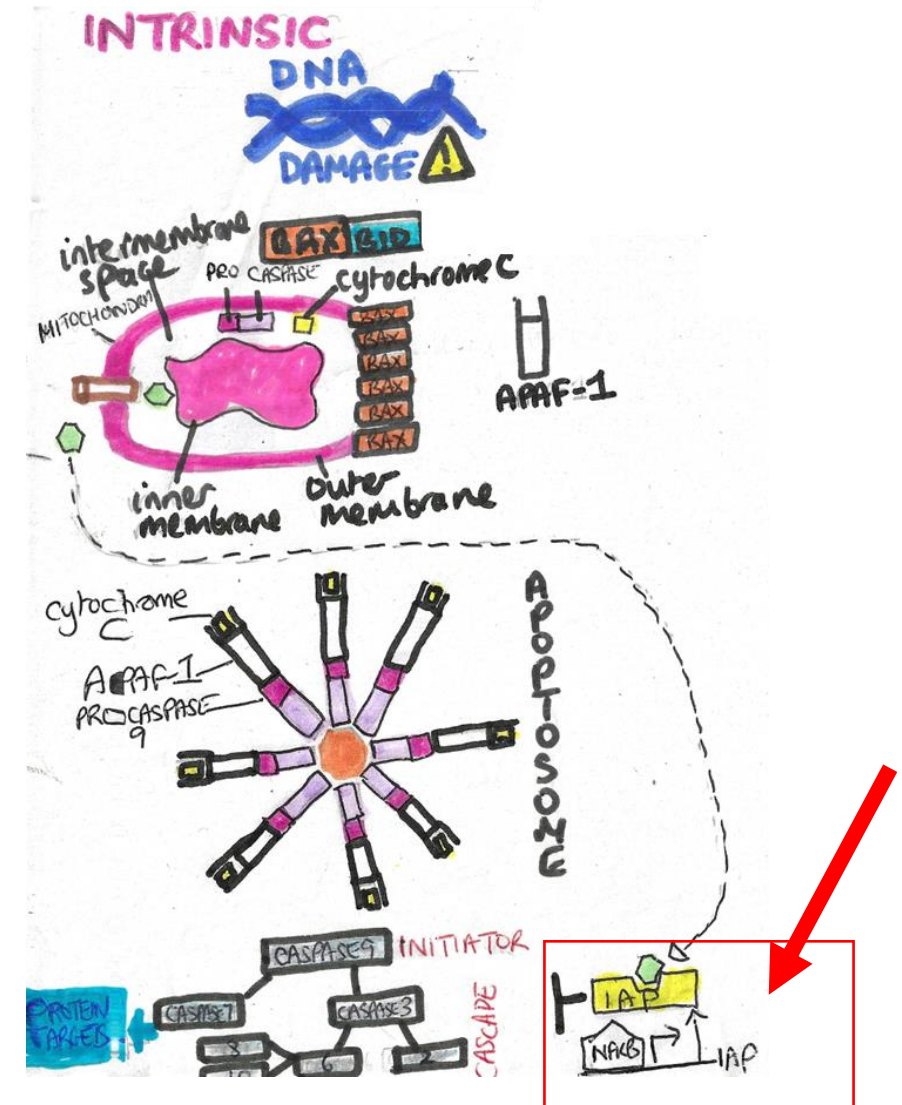 INTRINSIC
DNA
DAMAGE
BAX BID
intermembrane
space
PRO CASPASE
cytochrome C
BAX
BAX
BAX
BAX
BAX
BAX
APAF-1
inner
membrane
outer
membrane
cytochrome
C
APAF-1
PROCASPASE
9
APOPTOSOME
CASPASE9 INITIATOR
CASPASE7
CASPASE3
CASCADE
8
6
2
IAP
IAP